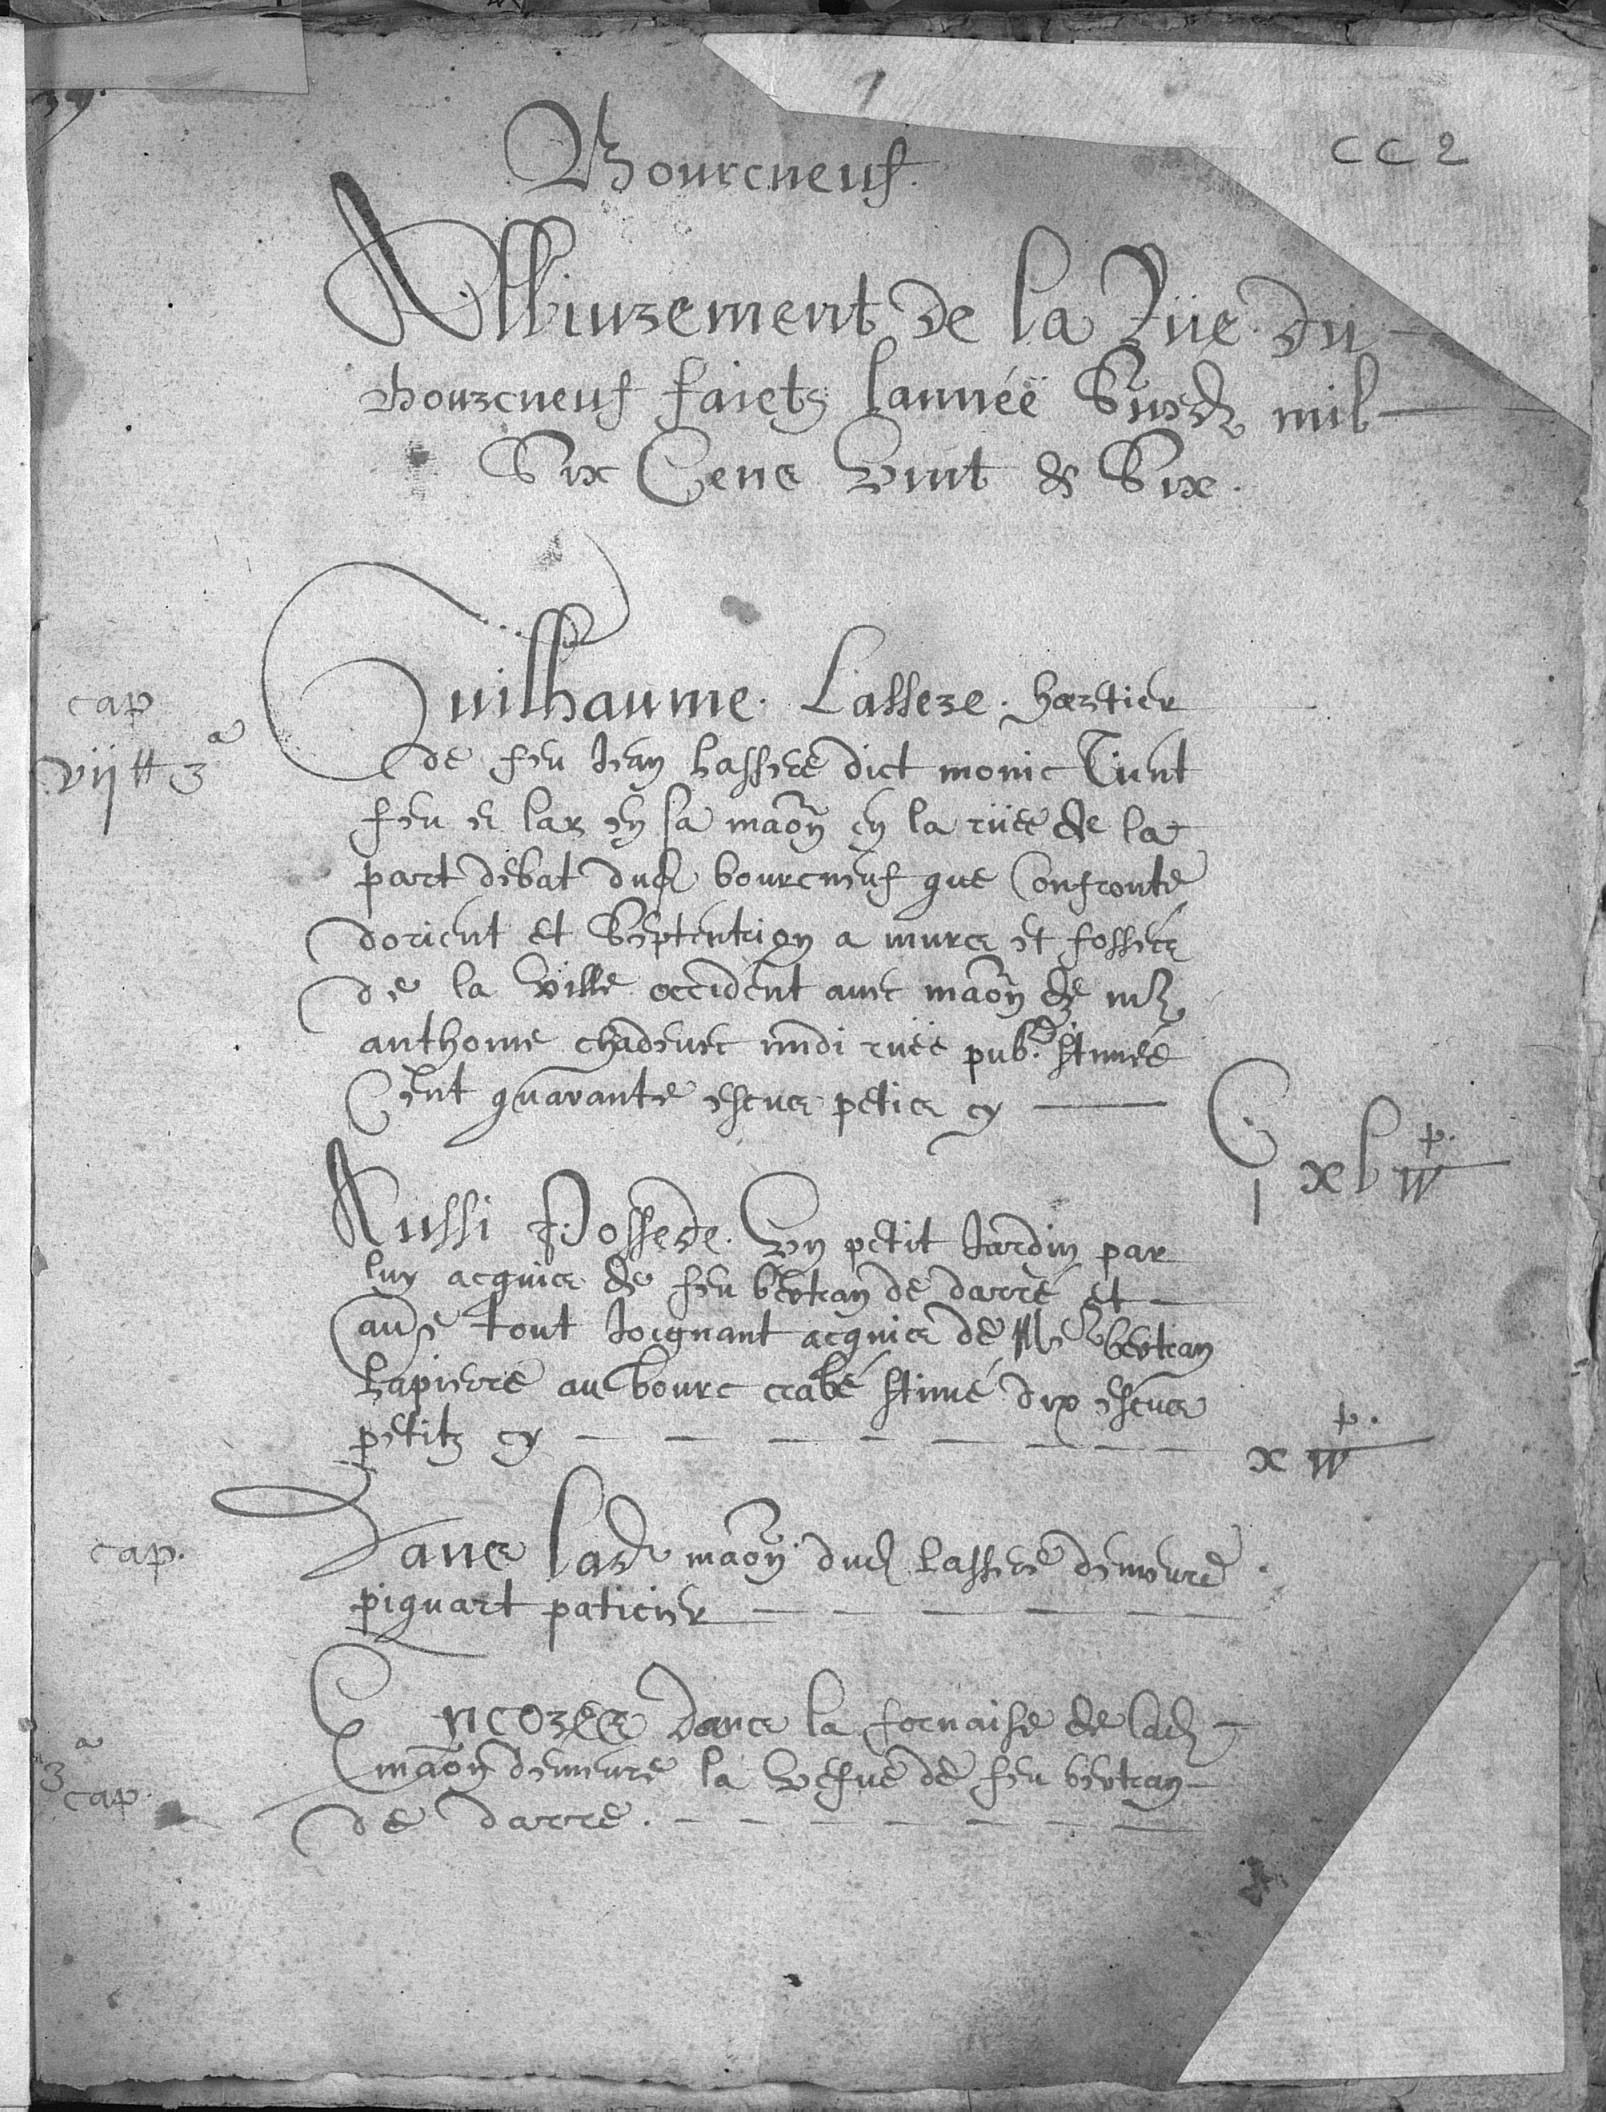 1
CC2
Bourcneuf.
Alliuzement de la Rüe du
bourcneuf faicts lannéë Susd. mil
Six Cens vint & Six.
cap
Guilhaume. Lassere. hærtier
vij # 3 a
de feu Jean Lassere dict monic Tient
feu et lar en sa maon en la rüee de la
part debat dud. bourcneuf que Confronte
dorient et Septentrion a murs et fosses
de la ville occident auec maon de mr.
anthonie chadeuec midi rüee pub. stimée
Cent quarante escus petis cy
C xl p.
Aussi Possede. Vn petit Jardin par
luy acquis de feu bertran de darré et
aue tout Joignant acquis de Me bertran
Lapierre au bourc crabé stimé dix escus
petitz cy
x p.
cap.
Dans lad. maon dud. Lassere demeure
piquart paticier
Encores Dans la fornaise de lad.
3 a
maon demeure la vefue de feu bertran
cap.
de darre.